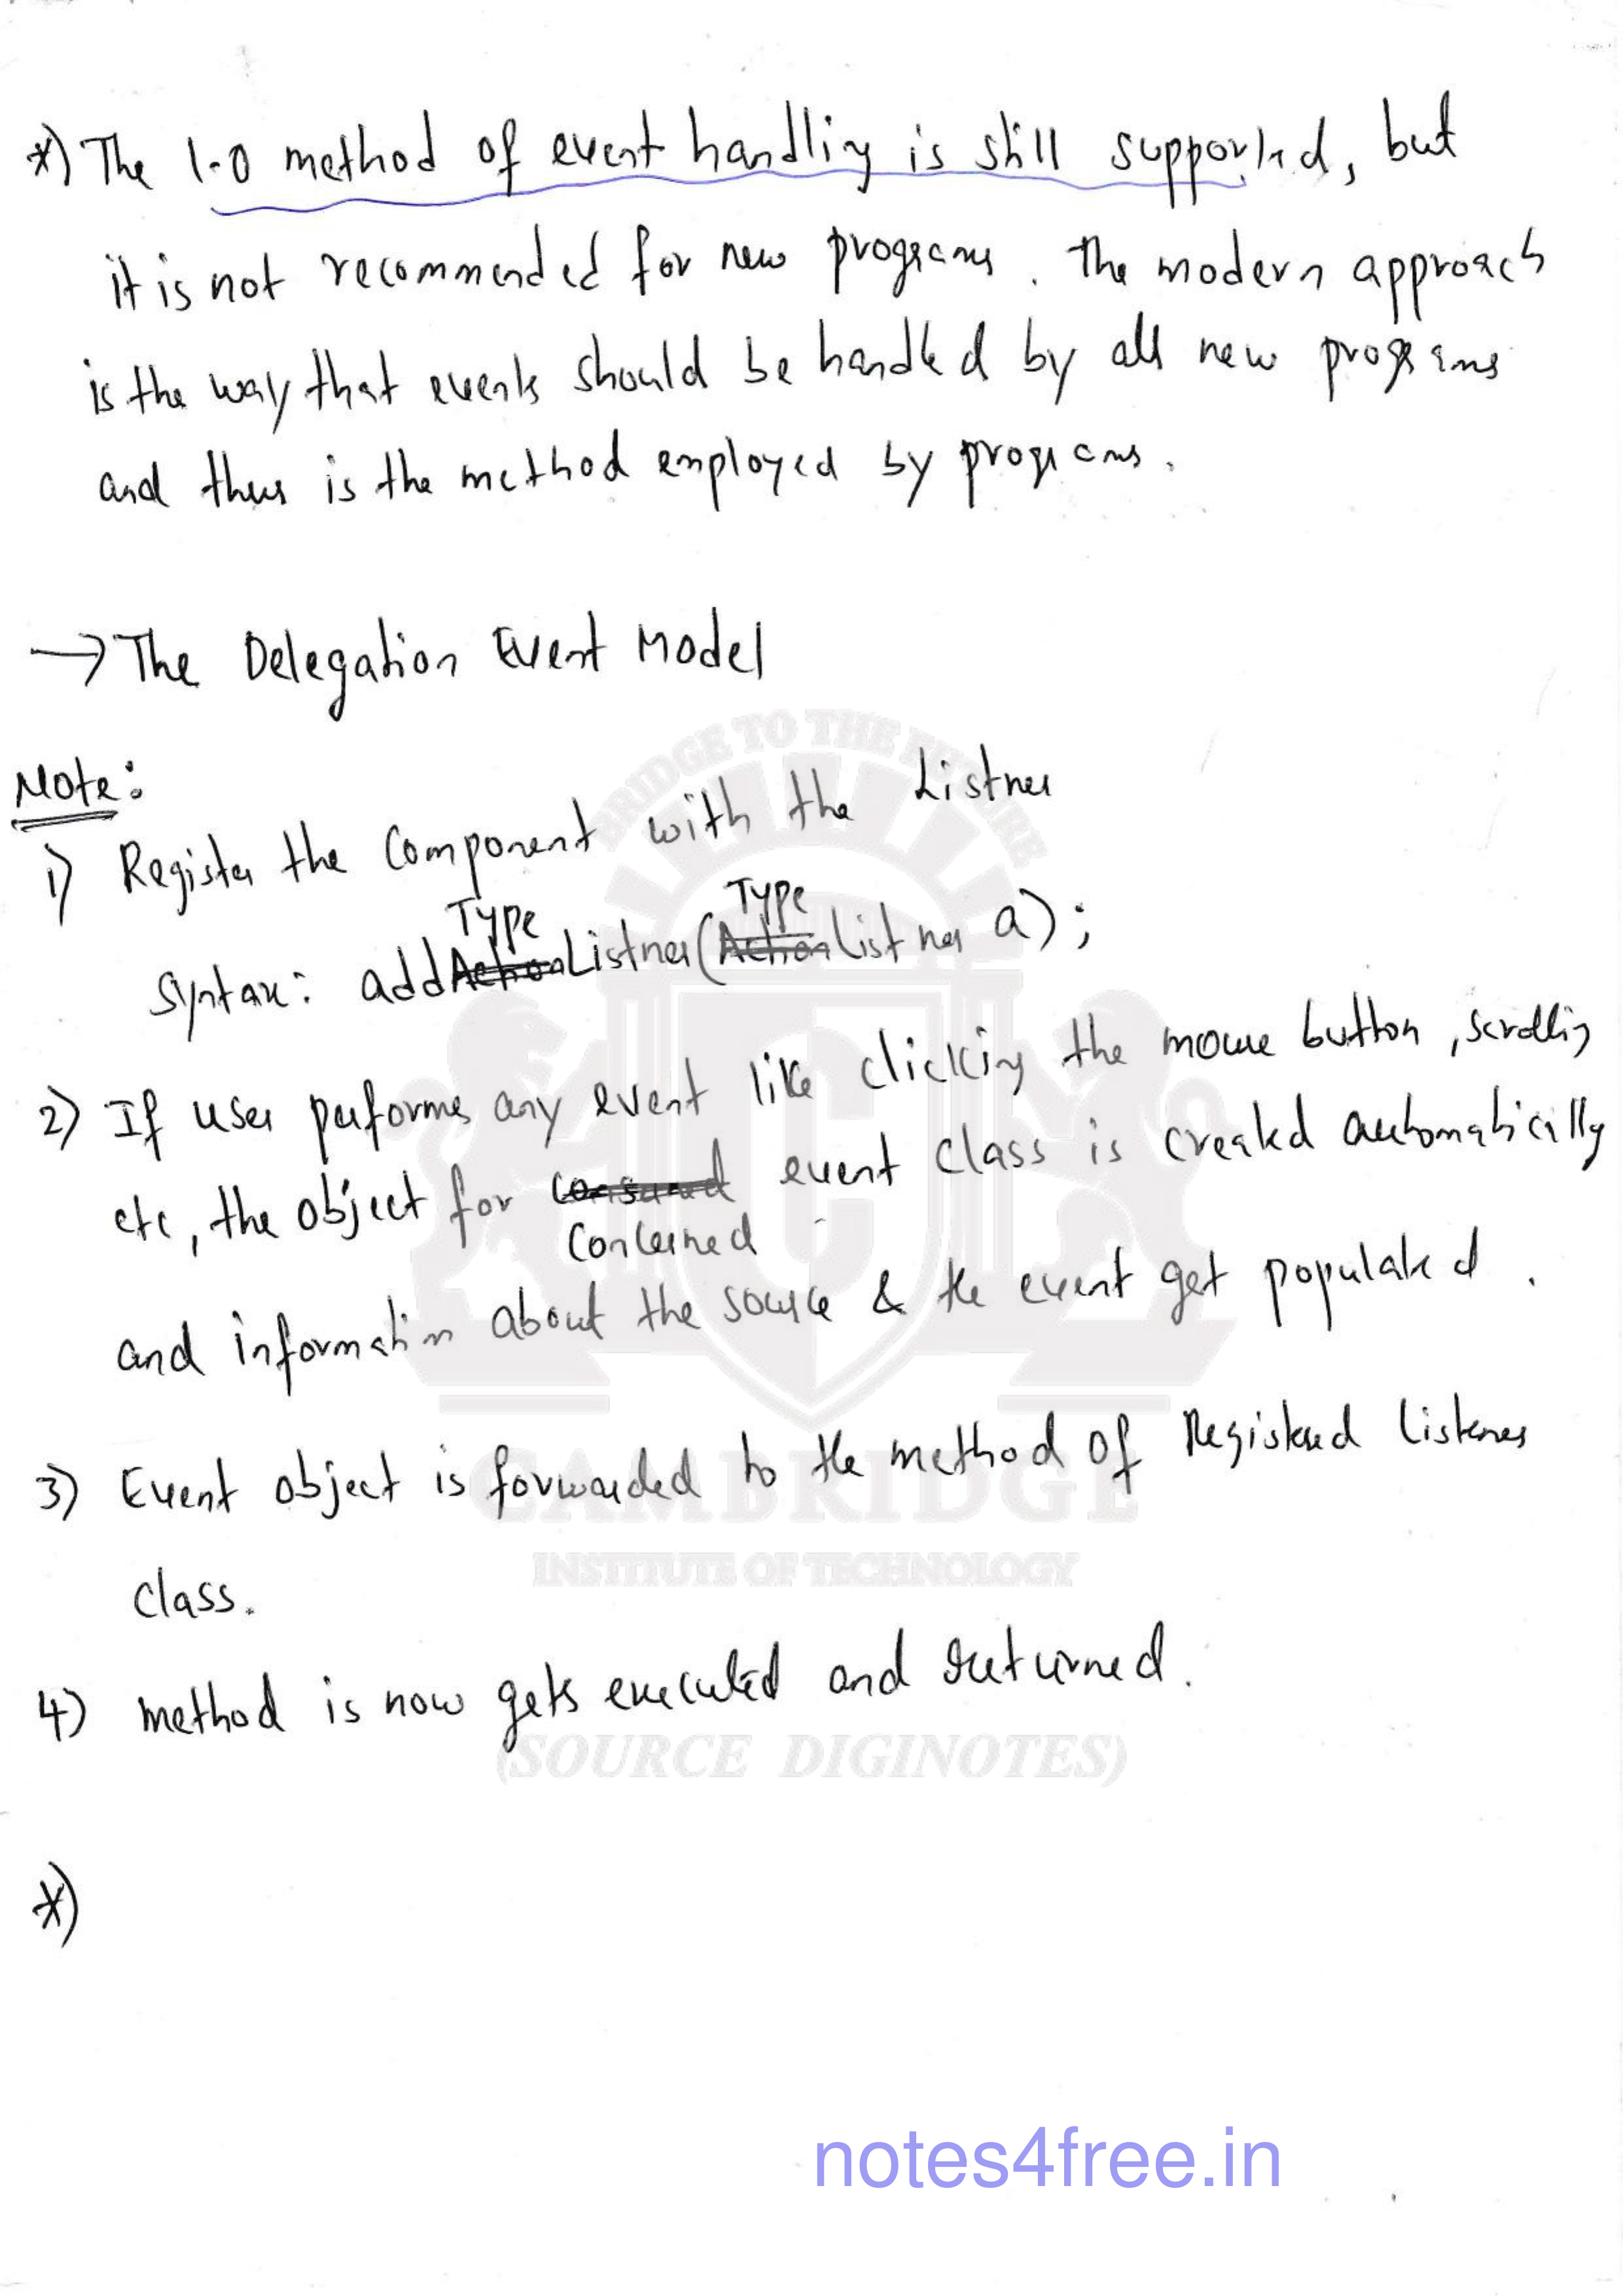 *) The 1.0 method of event handling is still supported, but
it is not recommended for new programs. The modern approach
is the way that events should be handled by all new programs
and thus is the method employed by programs.
→ The Delegation Event Model
Note:
1) Register the Component with the Listner
Type Type
Syntax: add Action Listner (Action List ner a);
2) If user performs any event like clicking the mouse button, scrolling
etc, the object for event class is created automatically
Concerned
and information about the source & the event get populated.
3) Event object is forwarded to the method of Registered listener
class.
4) method is now gets executed and returned.
*)
BRIDGE TO THE FUTURE
C
CAMBRIDGE
INSTITUTE OF TECHNOLOGY
(SOURCE DIGINOTES)
notes4free.in